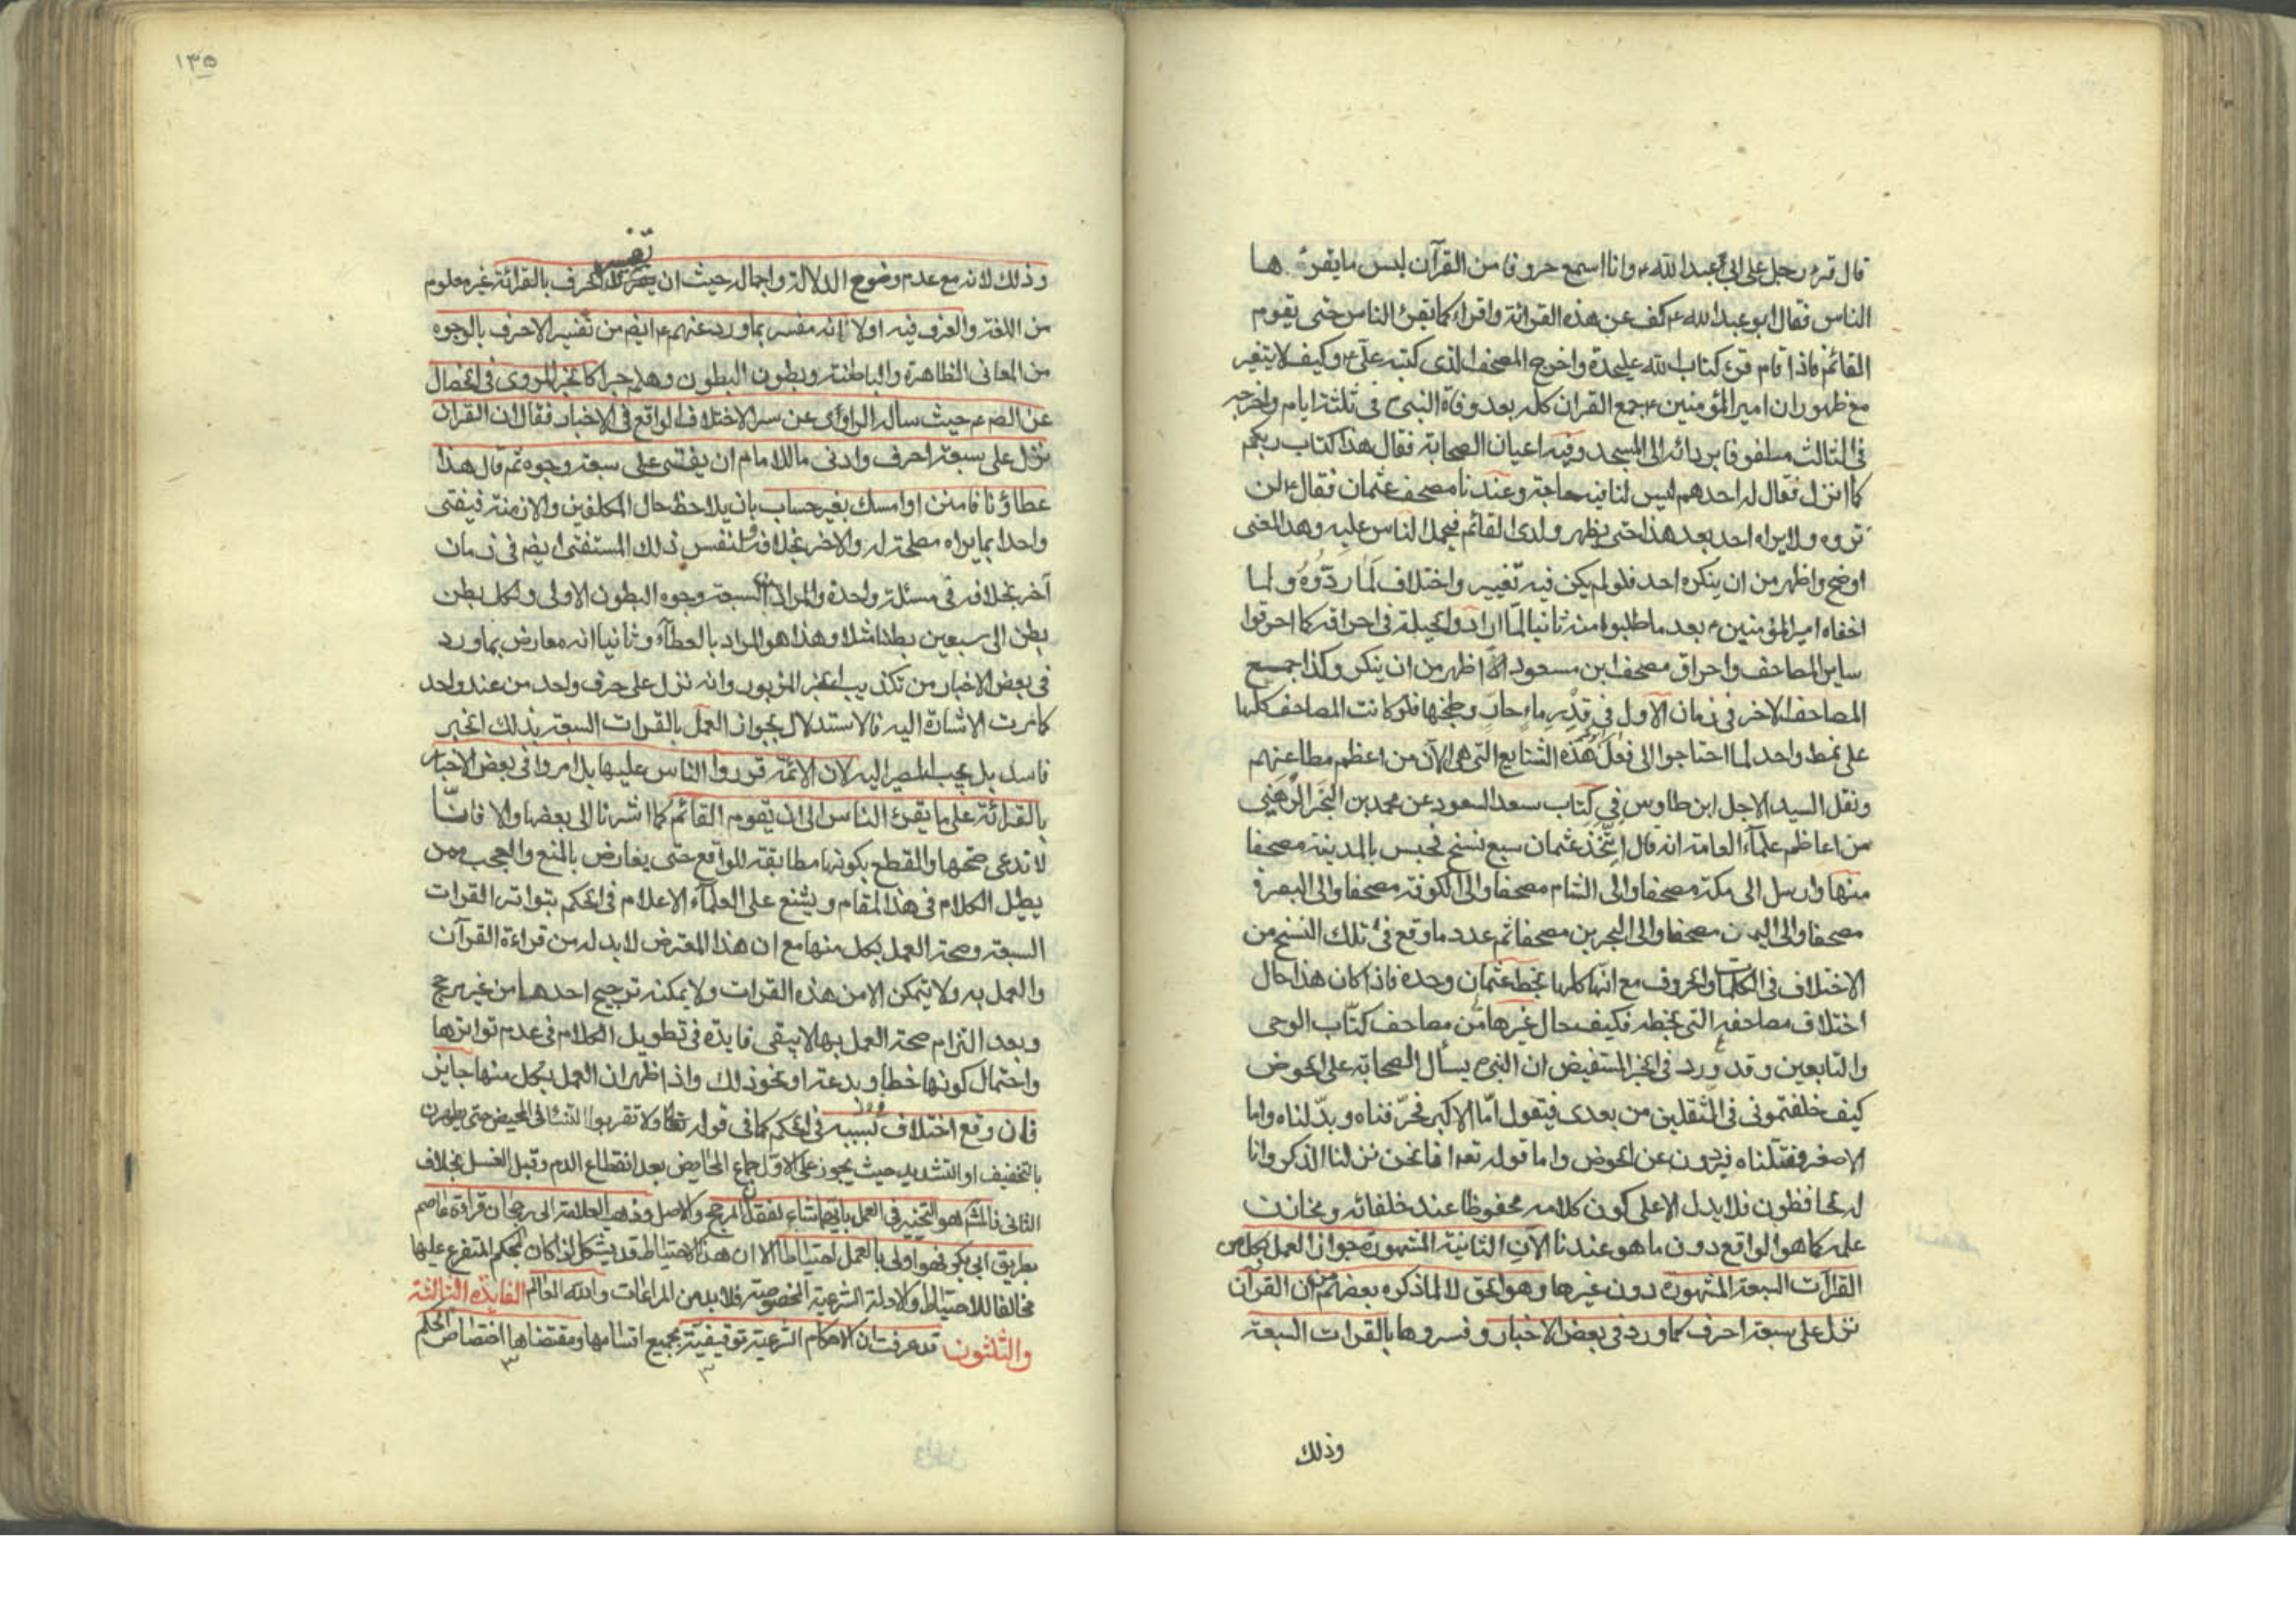 قال قرء رجل على ابي عبد الله ع وانا اسمع حروفا من القرآن ليس ما يقرئ ها
الناس فقال ابو عبد الله ع كف عن هذه القرائة واقراء كما يقرئ الناس حتى يقوم
القائم فاذا قام قرئ كتاب الله عليحدة واخرج المصحف الذى كتبه على ع وكيف لا يتغير
مع ظهور ان امير المؤمنين ع جمع القران كله بعد وفاة النبى ص فى ثلثة ايام واخرجه
فى الثالث ملفوفا بردائه الى المسجد وفيه اعيان الصحابة فقال هذا كتاب ربكم
كما انزل فقال له احدهم ليس لنا فيه حاجة وعندنا مصحف عثمان فقال ع لن
تروه ولا يراه احد بعد هذا حتى يظهر ولدى القائم فيحمل الناس عليه وهذا المعنى
اوضح واظهر من ان ينكره احد فلو لم يكن فيه تغيير واختلاف لَما ردّوُه ولما
اخفاه امير المؤمنين ع بعد ما طلبوا منه ثانيا لمّا ارادوا الحيلة فى احراقه كما احرقوا
ساير المصاحف واحراق مصحف ابن مسعود اظهر من ان ينكر وكذا جميع
المصاحف الاخر فى زمان الاول فى قِدْرِ ماءٍ حارٍّ وطبخها فلو كانت المصاحف كلها
على نمط واحد لما احتاجوا الى فعل هذه الشنايع التى هى الآن من اعظم مطاعنهم
ونقل السيد الاجل ابن طاوس فِي كِتَاب سعد السعود عن محمد بن البَحَر الرَّهَنِي
من اعاظم علمآء العامة انه قال اتِّخَذ عثمان سبع نسخ فحبس بالمدينة مصحفا
منها وارسل الى مكة مصحفا والى الشام مصحفا والى الكوفة مصحفا والى البصرة
مصحفا والى اليمن مصحفا والى البحرين مصحفا ثم عدد ما وقع فى تلك النسخ من
الاختلاف فى الكلمات والحروف مع انّها كلها بخط عثمان وحده فاذا كان هذا حال
اختلاف مصاحفه التى بخطه فكيف حال غيرها من مصاحف كتّاب الوحى
والتابعين وقد ورد فى الخبر المستفيض ان النبى ص يسأل الصحابة على الحوض
كيف خلفتمونى فى الثقلين من بعدى فيقول امّا الاكبر فحرّفناه وبدّلناه واما
الاصغر فقتلناه فيردون عن الحوض واما قوله تعا انا نحن نزلنا الذكر وانا
له لحافظون فلا يدل الا على كون كلامه محفوظا عند خلفائه ومخازن
علمه كما هو الواقع دون ما هو عندنا الآن الثانية المشهورة جواز العمل بكل من
القرآات السبعة المشهورة دون غيرها وهو الحق لا لما ذكره بعضهم من ان القرآن
نزل على سبعة احرف كما ورد فى بعض الاخبار وفسروها بالقراات السبعة
وذلك
١٣٥
تفسير
وذلك لانه مع عدم وضوح الدلالة واجماله حيث ان الحرف بالقرائة غير معلوم
من اللغة والعرف فيه اولا انه مفسر بما ورد عنهم ع ايضم من تفسير الاحرف بالوجوه
من المعانى الظاهرة والباطنة وبطون البطون وهلم جرا كالخبر المروى فى الخصال
عن الصم ع حيث سأله الراوى عن سر الاختلاف الواقع فى الاخبار فقال ان القران
نزل على سبعة احرف وادنى ما للامام ان يفتى على سبعة وجوه ثم قال هذا
عطاؤنا فامنن او امسك بغير حساب بان يلاحظ حال المكلفين والازمنة فيفتى
واحدا بما يراه مصلحة له والاخر بخلافه ولنفس ذلك المستفتى ايضم فى زمان
آخر بخلافه فى مسئلة واحدة والمراد السبعة وجوه البطون الاولى ولكل بطن
بطن الى سبعين بطنا مثلا وهذا هو المراد بالعطآء وثانيا انه معارض بما ورد
فى بعض الاخبار من تكذيب الخبر المزبور وانه نزل على حرف واحد من عند واحد
كما مرت الاشارة اليه فالاستدلال بجواز العمل بالقراات السبعة بذلك الخبر
فاسد بل يجب المصير اليه لان الائمة قرروا الناس عليها بل امروا فى بعض الاخبار
بالقرائة على ما يقرئ الناس الى ان يقوم القائم كما اشرنا الى بعضها والا فانّا
لا ندعى صحتها والقطع بكونها مطابقة للواقع حتى يعارض بالمنع والعجب ممن
يطيل الكلام فى هذا المقام ويشنع على العلمآء الاعلام فى الحكم بتواتر القراات
السبعة وصحة العمل بكل منها مع ان هذا المعترض لا بد له من قراءة القرآن
والعمل به ولا يتمكن الا من هذه القراات ولا يمكنه ترجيح احدها من غير مرجح
وبعد التزام صحة العمل بها لا يبقى فايدة فى تطويل الكلام فى عدم تواترها
واحتمال كونها خطا وبدعة او نحو ذلك واذا ظهر ان العمل بكل منها جايز
فان وقع اختلاف بسببه فى الحكم كما فى قوله تعا ولا تقربوا النسا فى المحيض حتى يطهرن
بالتخفيف او التشديد حيث يجوز على الاول جماع الحايض بعد انقطاع الدم وقبل الغسل بخلاف
الثانى فالمشهم هو التخيير فى العمل بايهما شاء لفقد المرجح والاصل وذهب العلامة الى رجحان قراءة عاصم
بطريق ابى بكر فهو اولى بالعمل احتياطا الا ان هذا الاحتياط قد يشكل اذا كان الحكم المتفرع عليها
مخالفا للاحتياط والادلة الشرعية المخصوصة فلا بد من المراعات والله العالم الفايدة الثالثة
والثلثون قد عرفت ان الاحكام الشرعية توقيفيّة بجميع اقسامها ومقتضاها اختصاص الحكم